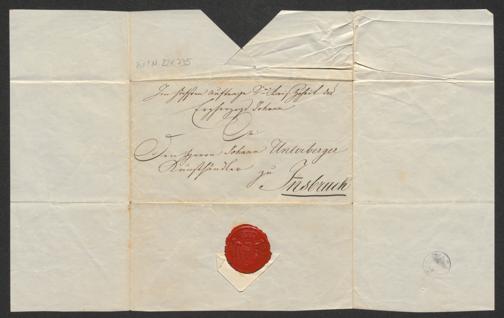 Im höchsten Auftrage Sr. Kais. Hoheit des
Erzherzogs Johann
An
Den Herrn Johann Unterberger
Kunsthändler
zu
Insbruck